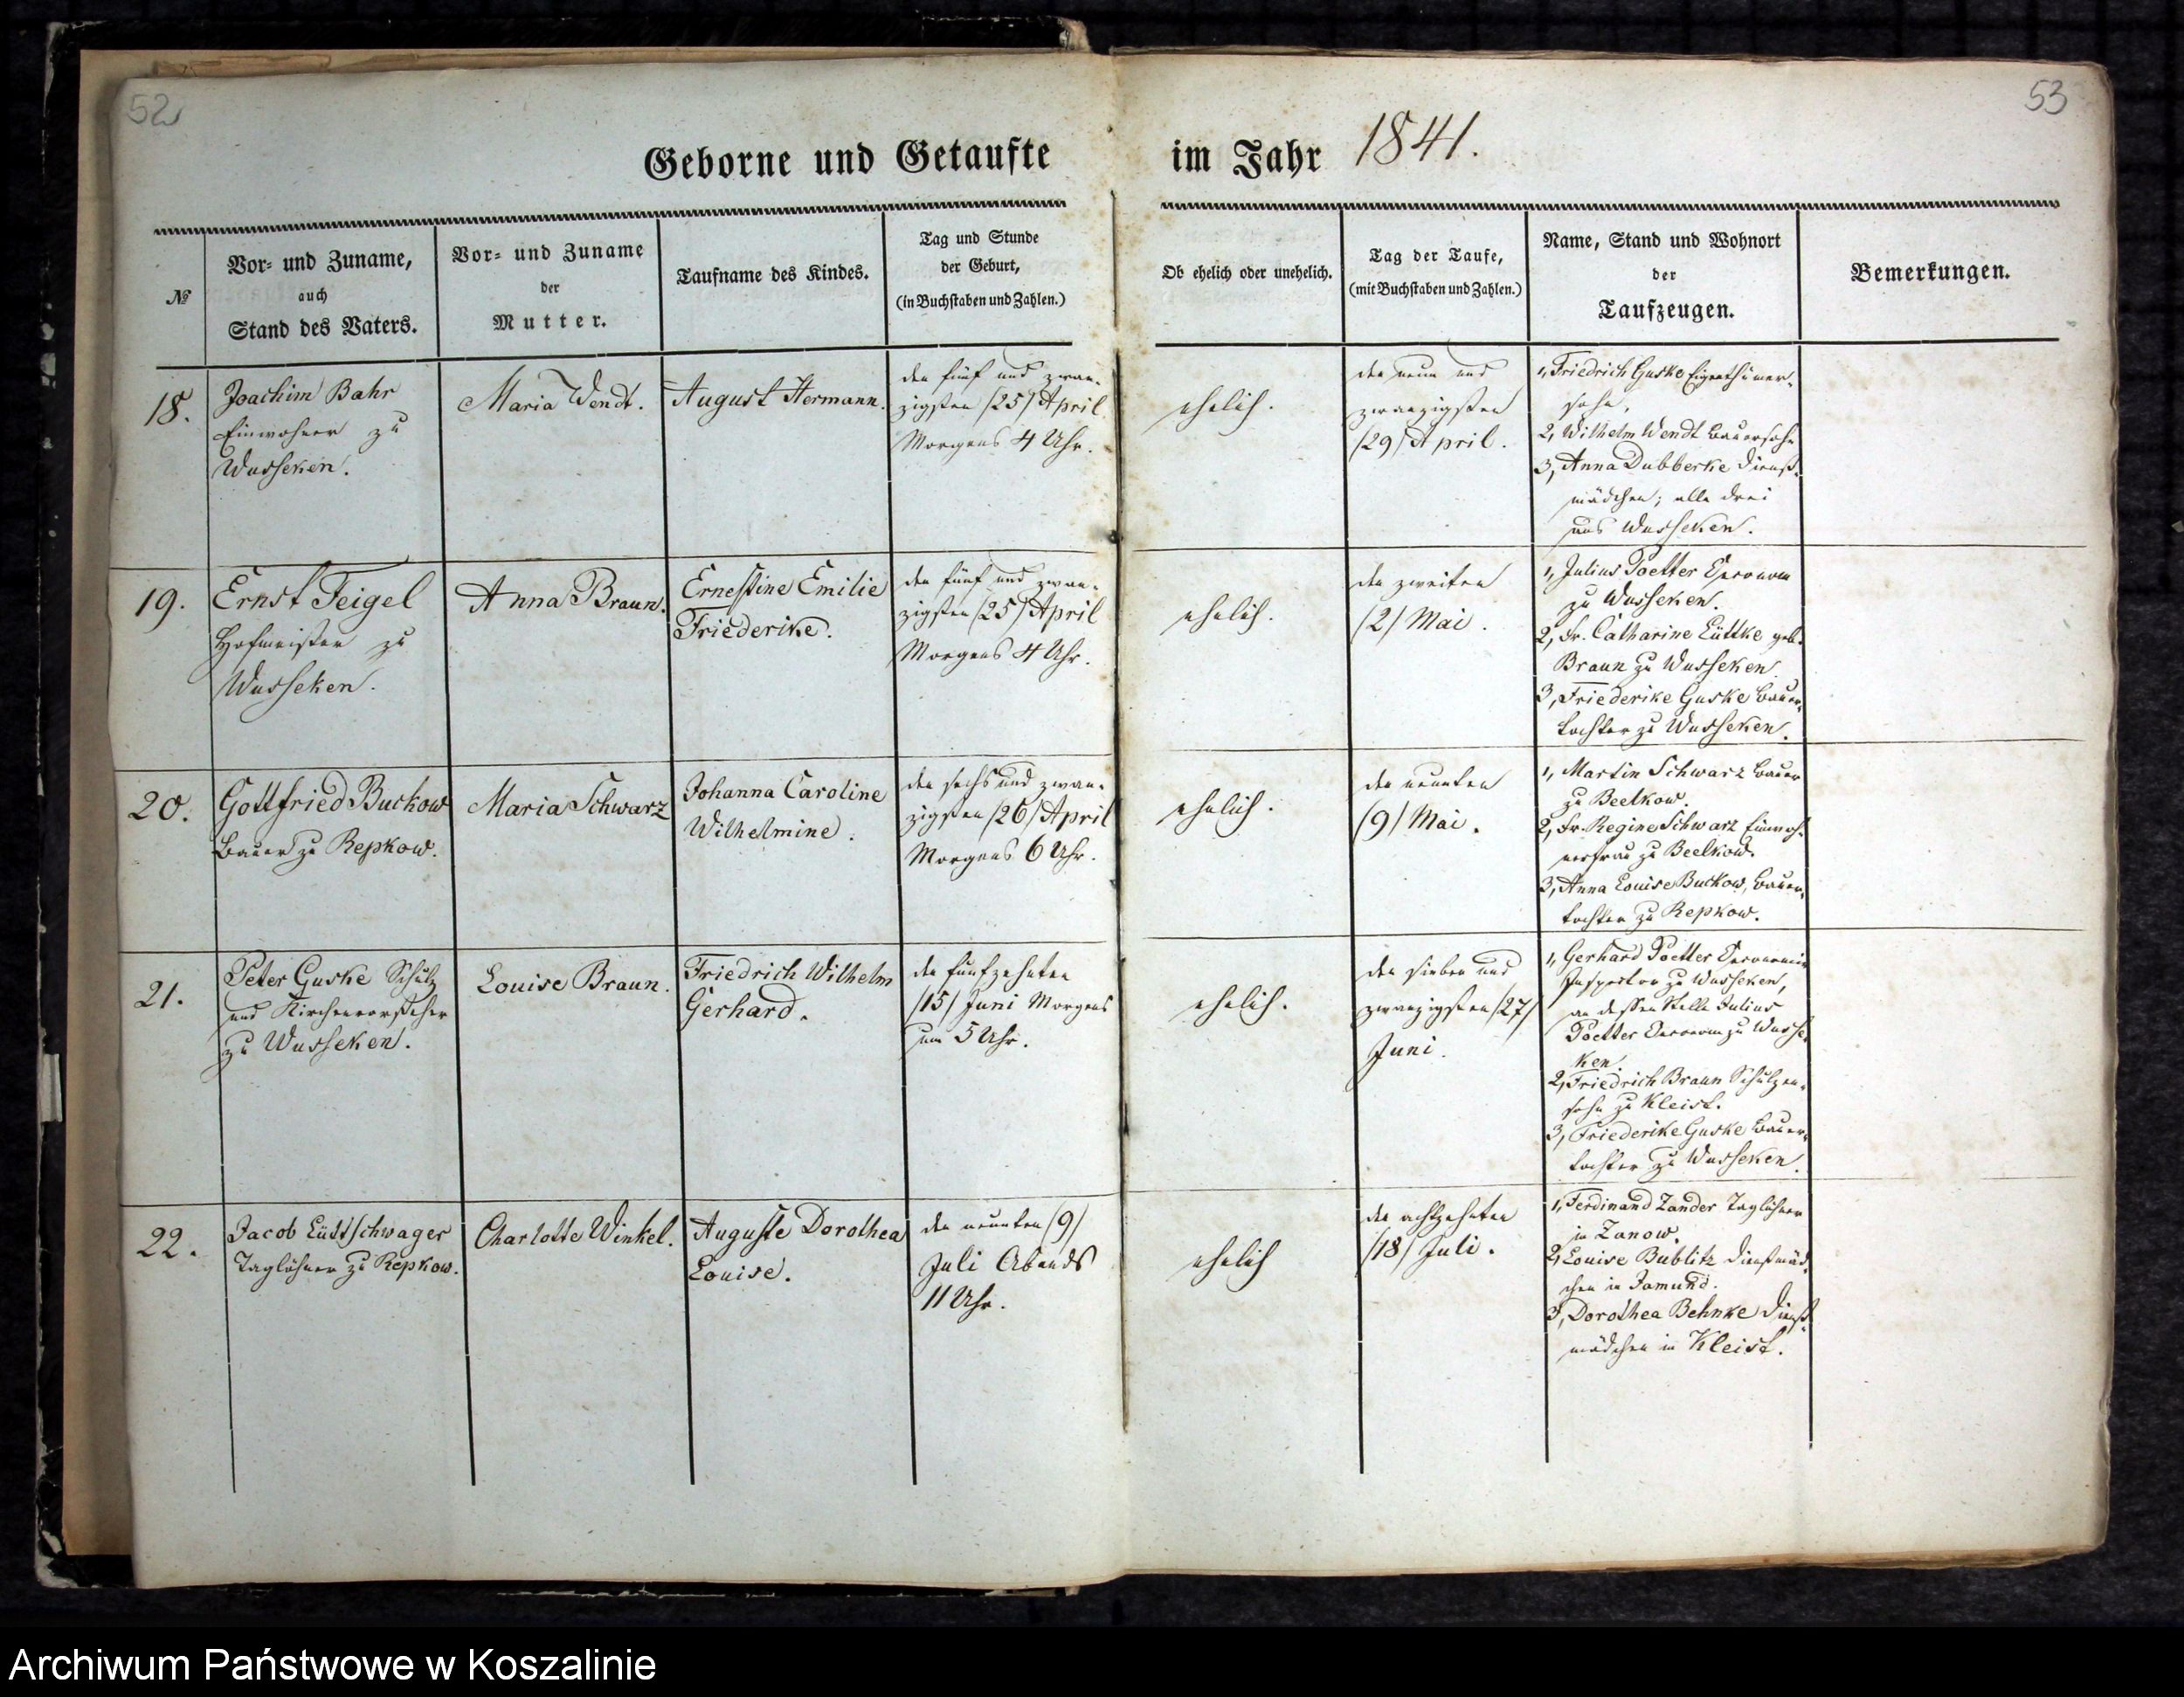 52
53
Geborne und Getaufte im Jahr 1841.
№
Vor- und Zuname,
auch
Stand des Vaters.
Vor- und Zuname
der
Mutter.
Taufname des Kindes.
Tag und Stunde
der Geburt,
(in Buchstaben und Zahlen.)
Ob ehelich oder unehelich.
Tag der Taufe,
(mit Buchstaben und Zahlen.)
Name, Stand und Wohnort
der
Taufzeugen.
Bemerkungen.
18.
Joachim Bahr
Einwohner zu
Wusseken.
Maria Wendt.
August Hermann.
den fünf und zwan-
zigsten /25/ April
Morgens 4 Uhr.
ehelich.
den neun und
zwanzigsten
/29/ April.
1, Friedrich Guske Eigenthümer-
sohn,
2, Wilhelm Wendt Bauersohn
3, Anna Dubberke Dienst-
mädchen; alle drei
aus Wusseken.
19.
Ernst Feigel
Hofmeister zu
Wusseken.
Anna Braun.
Ernestine Emilie
Friederike.
den fünf und zwan-
zigsten /25/ April
Morgens 4 Uhr.
ehelich.
den zweiten
/2/ Mai.
1, Julius Poetter Oeconom
zu Wusseken.
2, Fr. Catharine Lüttke geb.
Braun zu Wusseken.
3, Friederike Guske Bauer-
tochter zu Wusseken.
20.
Gottfried Buckow
Bauer zu Repkow.
Maria Schwarz
Johanna Caroline
Wilhelmine.
den sechs und zwan-
zigsten /26/ April
Morgens 6 Uhr.
ehelich.
den neunten
/9/ Mai.
1, Martin Schwarz Bauer
zu Beelkow.
2, Fr. Regine Schwarz Einwoh-
nerfrau zu Beelkow.
3, Anna Louise Buckow, Bauer-
tochter zu Repkow.
21.
Peter Guske Schulz
und Kirchenvorsteher
zu Wusseken.
Louise Braun.
Friedrich Wilhelm
Gerhard.
den funfzehnten
/15/ Juni Morgens
um 5 Uhr.
ehelich.
den sieben und
zwanzigsten /27/
Juni.
1, Gerhard Poetter Oeconomie
Inspector zu Wusseken,
an dessen Stelle Julius
Poetter Oeconom zu Wusse-
ken.
2, Friedrich Braun Schulzen-
sohn zu Kleist.
3, Friederike Guske Bauer-
tochter zu Wusseken.
22.
Jacob Lüdtschwager
Taglöhner zu Repkow.
Charlotte Winkel.
Auguste Dorothea
Louise.
den neunten /9/
Juli Abends
11 Uhr.
ehelich
den achtzehnten
/18/ Juli.
1, Ferdinand Zander Taglöhner
in Zanow.
2, Louise Bublitz Dienstmäd-
chen in Jamund.
3, Dorothea Behnke Dienst-
mädchen in Kleist.
Archiwum Państwowe w Koszalinie